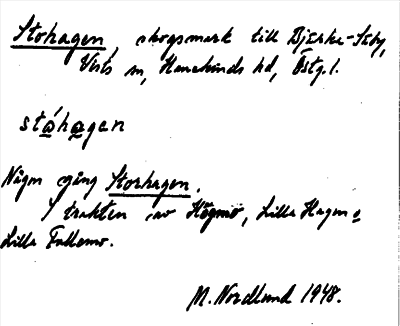 Stohagen, skogsmark till Bjärka-Säby,
Vists sn, Hanekinds hd, Östg.l.
stáhagen
Någon gång Storhagen.
I trakten av Högmo, Lilla Hagen o
Lilla Fallemo.
M. Nordlund 1948.